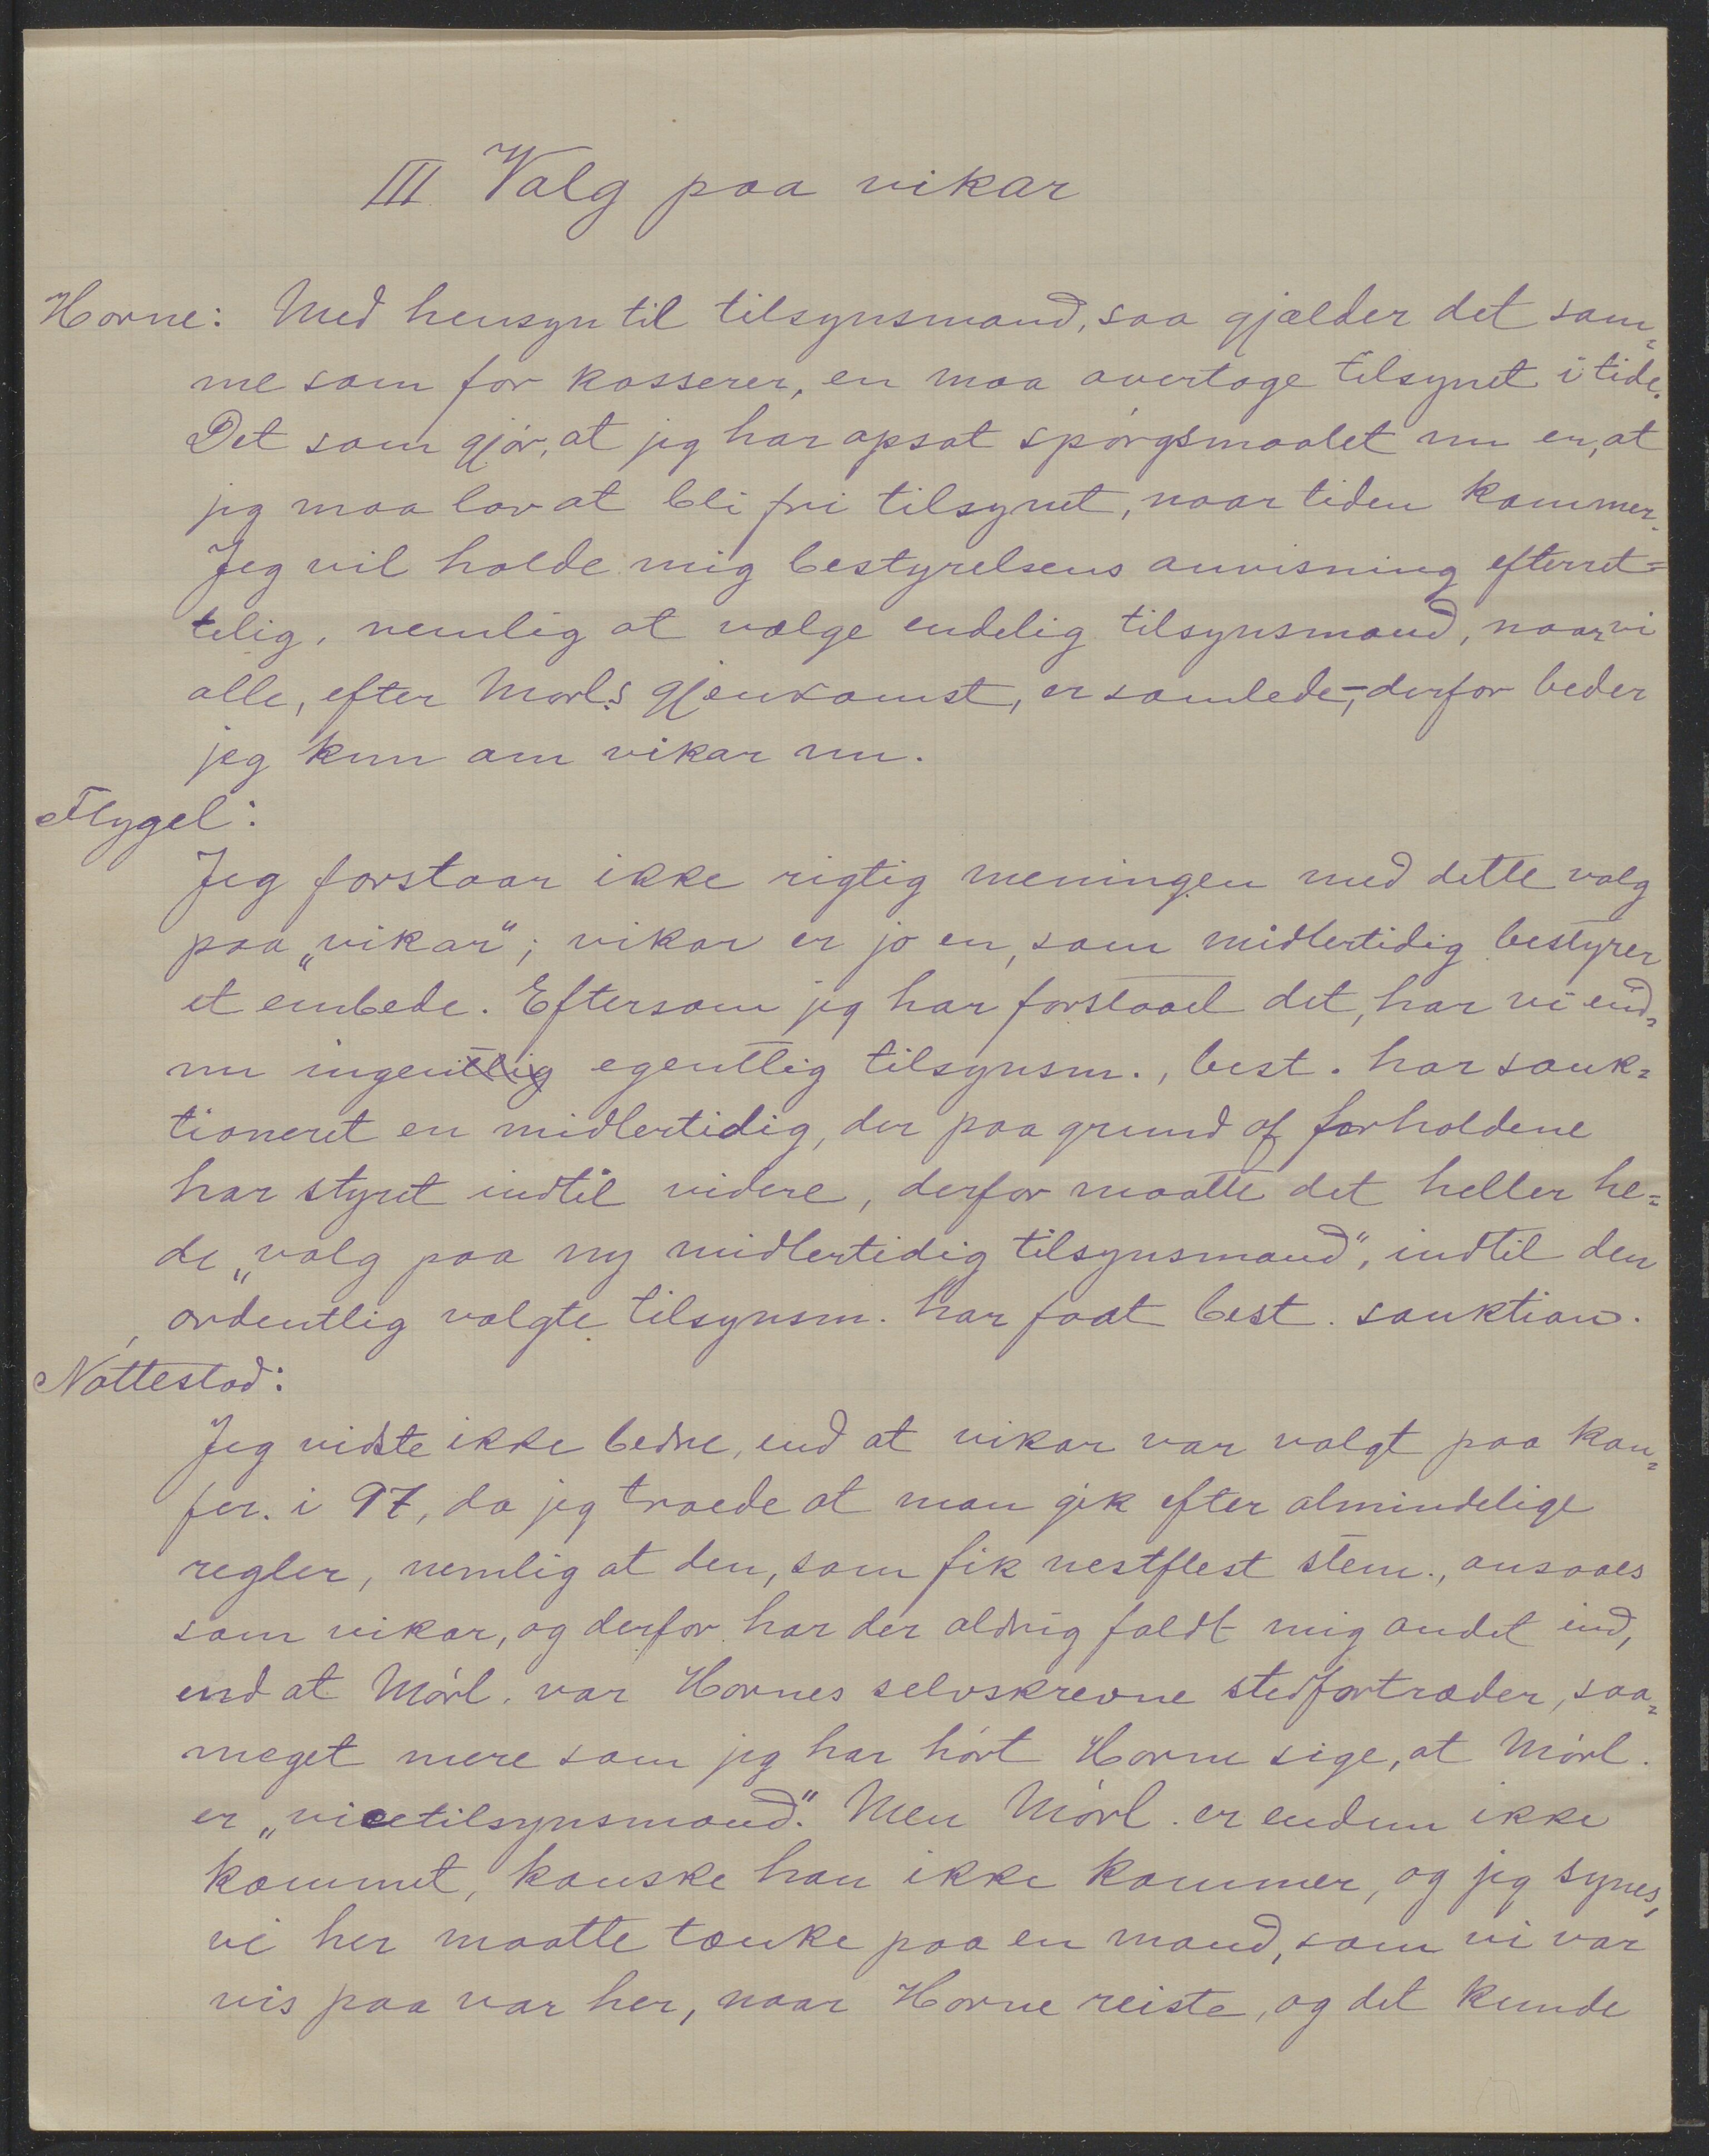 III Valg paa vikar
Horne: Med hensyn til tilsynsmand, saa gjælder det sam=
me som for kasserer, en maa overtage tilsynet i tide.
Det som gjør, at jeg har opsat spørgsmaalet nu er, at
jeg maa lov at bli fri tilsynet, naar tiden kommer.
Jeg vil holde mig bestyrelsens anvisning efterret=
telig, nemlig at vælge endelig tilsynsmand, naar vi
alle, efter Mørl.s gjenkomst, er samlede,- derfor beder
jeg kun om vikar nu.
Flygel:
Jeg forstaar ikke rigtig meningen med dette valg
paa „vikar“; vikar er jo en, som midlertidig bestyrer
et embede. Eftersom jeg har forstaaet det, har vi end=
nu ingentlig egentlig tilsynsm., best. har sank=
tioneret en midlertidig, der paa grund af forholdene
har styret indtil videre, derfor maatte det heller he=
de „valg paa ny midlertidig tilsynsmand“, indtil den
ordentlig valgte tilsynsm. har faat best. sanktion.
Nøttestad:
Jeg vidste ikke bedre, end at vikar var valgt paa kon=
fer. i 97, da jeg troede at man gik efter almindelige
regler, nemlig at den, som fik nestflest stem., ansaaes
som vikar, og derfor har der aldrig faldt mig andet ind,
end at Mørl. var Hornes selvskrevne stedfortræder, saa=
meget mere som jeg har hørt Horne sige, at Mørl.
er „vicetilsynsmand“. Men Mørl. er endnu ikke
kommet, kanske han ikke kommer, og jeg synes,
vi her maatte tænke paa en mand, som vi var
vis paa var her, naar Horne reiste, og det kunde